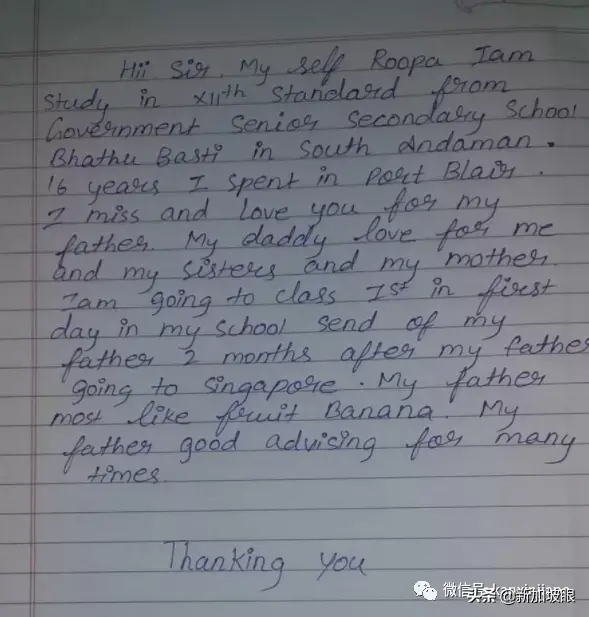 Hii Sir. My self Roopa Iam
study in XIIth standard from
Government Senior Secondary School
Bhathu Basti in South Andaman.
16 years I spent in Port Blair.
I miss and love you for my
father. My daddy love for me
and my sisters and my mother
Iam going to class Ist in first
day in my school send of my
father 2 months after my father
going to Singapore. My father
most like fruit Banana. My
father good advising for many
times.
Thanking you
微信号: kanxinjiapo
头条 @新加坡眼